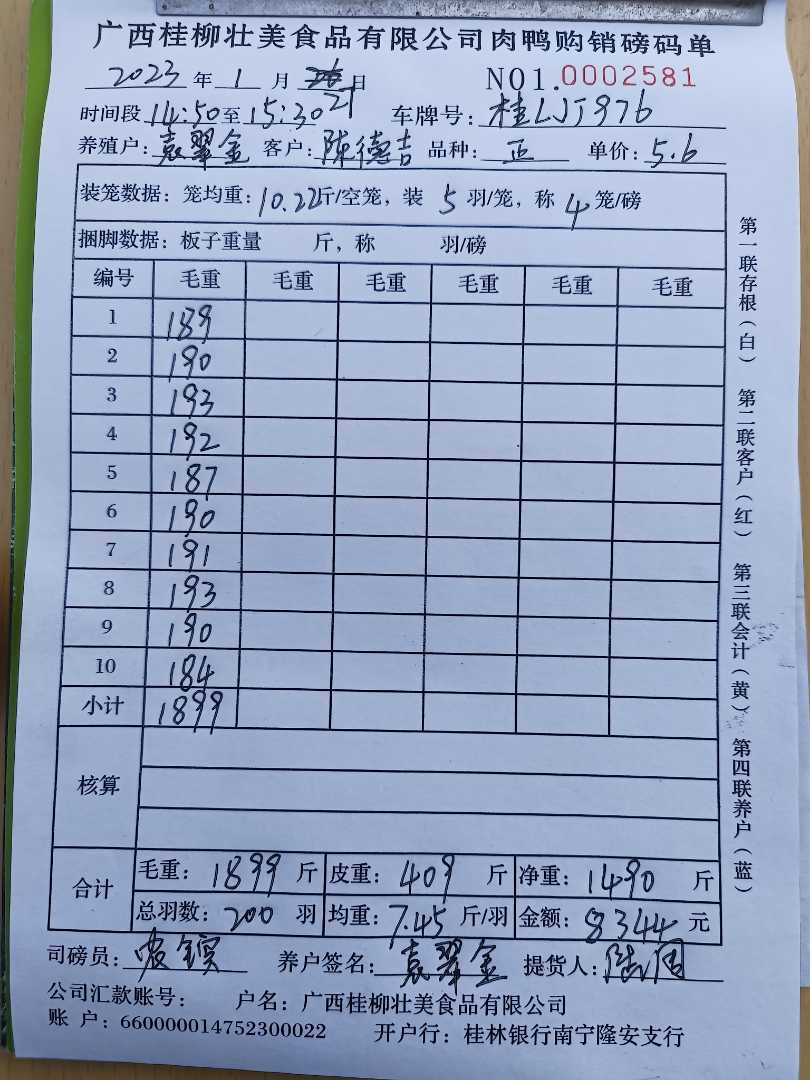 广西桂柳壮美食品有限公司肉鸭购销磅码单
2023年1月21日 NO1.0002581
时间段14:50至15:30 车牌号:桂LJJ976
养殖户:袁翠金 客户:陈德吉 品种:正 单价:5.6
装笼数据:笼均重:10.22斤/空笼,装5羽/笼,称4笼/磅
捆脚数据:板子重量 斤,称 羽/磅
编号 毛重 毛重 毛重 毛重 毛重 毛重
1 189
2 190
3 193
4 192
5 187
6 190
7 191
8 193
9 190
10 184
小计 1899
核算
合计 毛重:1899斤 皮重:409斤 净重:1490斤
总羽数:200羽 均重:7.45斤/羽 金额:8344元
司磅员: 养户签名:袁翠金 提货人:
公司汇款账号: 户名:广西桂柳壮美食品有限公司
账户:660000014752300022 开户行:桂林银行南宁隆安支行
第一联存根(白) 第二联客户(红) 第三联会计(黄) 第四联养户(蓝)